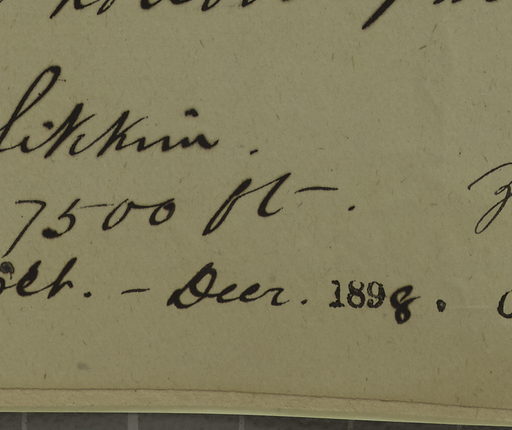 Sikkim.
7500 ft.
Oct. - Decr. 1898.